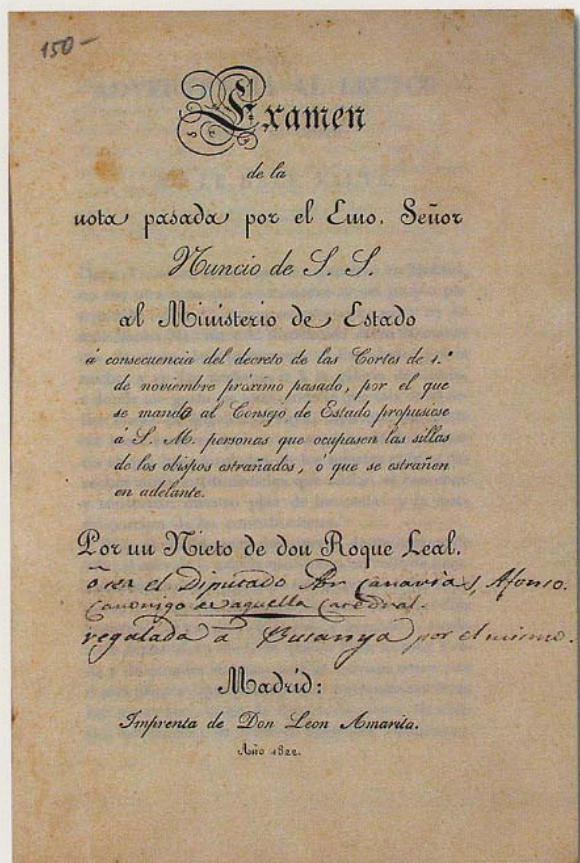 150-
Examen
de la
nota pasada por el Emo. Señor
Nuncio de S. S.
al Ministerio de Estado
á consecuencia del decreto de las Cortes de 1.º
de noviembre próximo pasado, por el que
se mandó al Consejo de Estado propusiese
á S. M. personas que ocupasen las sillas
de los obispos estrañados, ó que se estrañen
en adelante.
Por un Nieto de don Roque Leal.
ô sea el Diputado por Canarias, Afonso.
Canonigo de aquella Catedral.
regalada â por el mismo.
Madrid:
Imprenta de Don Leon Amarita.
Año 1822.